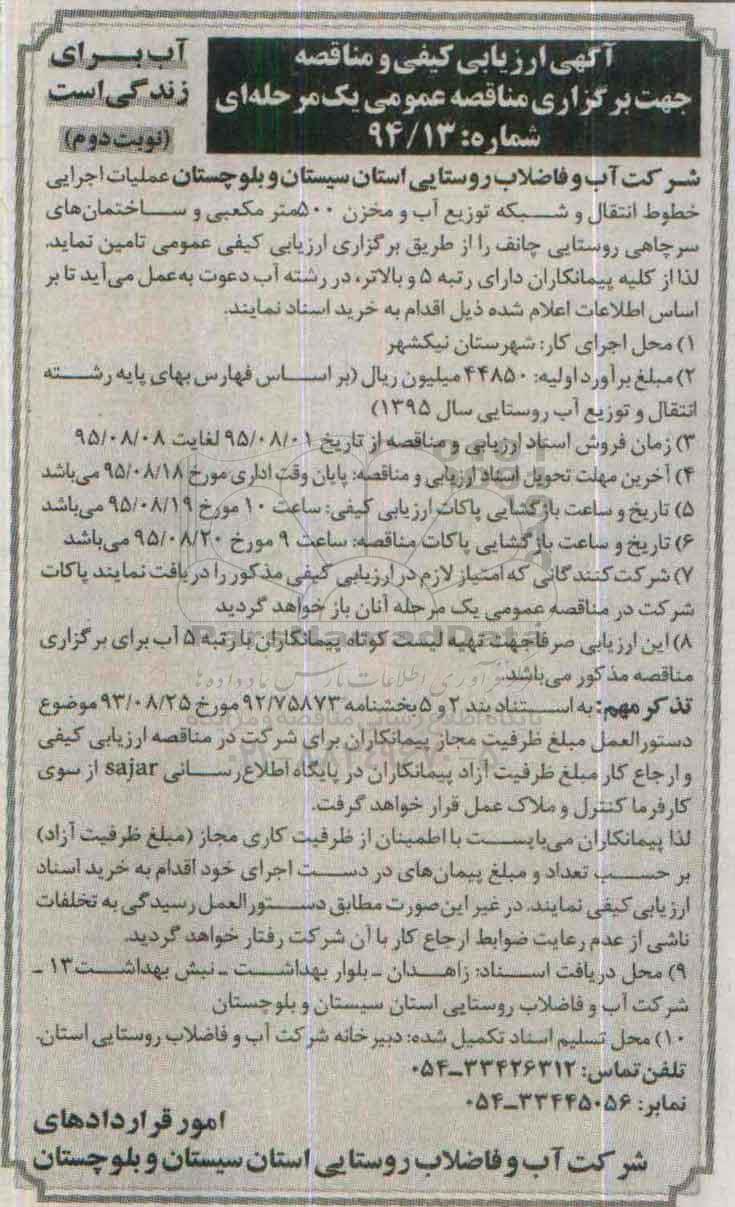 آب برای
زندگی است
(نوبت دوم)
آگهی ارزیابی کیفی و مناقصه
جهت برگزاری مناقصه عمومی یک مرحله‌ای
شماره: ۹۴/۱۳
شرکت آب و فاضلاب روستایی استان سیستان و بلوچستان عملیات اجرایی
خطوط انتقال و شبکه توزیع آب و مخزن ۵۰۰متر مکعبی و ساختمان‌های
سرچاهی روستایی چانف را از طریق برگزاری ارزیابی کیفی عمومی تامین نماید.
لذا از کلیه پیمانکاران دارای رتبه ۵ و بالاتر، در رشته آب دعوت به‌عمل می‌آید تا بر
اساس اطلاعات اعلام شده ذیل اقدام به خرید اسناد نمایند.
۱) محل اجرای کار: شهرستان نیکشهر
۲) مبلغ برآورد اولیه: ۴۴۸۵۰ میلیون ریال (بر اساس فهارس بهای پایه رشته
انتقال و توزیع آب روستایی سال ۱۳۹۵)
۳) زمان فروش اسناد ارزیابی و مناقصه از تاریخ ۹۵/۰۸/۰۱ لغایت ۹۵/۰۸/۰۸
۴) آخرین مهلت تحویل اسناد ارزیابی و مناقصه: پایان وقت اداری مورخ ۹۵/۰۸/۱۸ می‌باشد
۵) تاریخ و ساعت بازگشایی پاکات ارزیابی کیفی: ساعت ۱۰ مورخ ۹۵/۰۸/۱۹ می‌باشد
۶) تاریخ و ساعت بازگشایی پاکات مناقصه: ساعت ۹ مورخ ۹۵/۰۸/۲۰ می‌باشد
۷) شرکت‌کنندگانی که امتیاز لازم در ارزیابی کیفی مذکور را دریافت نمایند پاکات
شرکت در مناقصه عمومی یک مرحله آنان باز خواهد گردید
۸) این ارزیابی صرفا جهت تهیه لیست کوتاه پیمانکاران با رتبه ۵ آب برای برگزاری
مناقصه مذکور می‌باشد.
تذکر مهم: به استناد بند ۲ و ۵ بخشنامه ۹۲/۷۵۸۷۳ مورخ ۹۳/۰۸/۲۵ موضوع
دستورالعمل مبلغ ظرفیت مجاز پیمانکاران برای شرکت در مناقصه ارزیابی کیفی
و ارجاع کار مبلغ ظرفیت آزاد پیمانکاران در پایگاه اطلاع رسانی sajar از سوی
کارفرما کنترل و ملاک عمل قرار خواهد گرفت.
لذا پیمانکاران می‌بایست با اطمینان از ظرفیت کاری مجاز (مبلغ ظرفیت آزاد)
بر حسب تعداد و مبلغ پیمان‌های در دست اجرای خود اقدام به خرید اسناد
ارزیابی کیفی نمایند. در غیر این‌صورت مطابق دستورالعمل رسیدگی به تخلفات
ناشی از عدم رعایت ضوابط ارجاع کار با آن شرکت رفتار خواهد گردید.
۹) محل دریافت اسناد: زاهدان ـ بلوار بهداشت ـ نبش بهداشت ۱۳ ـ
شرکت آب و فاضلاب روستایی استان سیستان و بلوچستان
۱۰) محل تسلیم اسناد تکمیل شده: دبیرخانه شرکت آب و فاضلاب روستایی استان.
تلفن تماس: ۳۳۴۲۶۳۱۲-۰۵۴
نمابر: ۳۳۴۴۵۰۵۶-۰۵۴
امور قراردادهای
شرکت آب و فاضلاب روستایی استان سیستان و بلوچستان